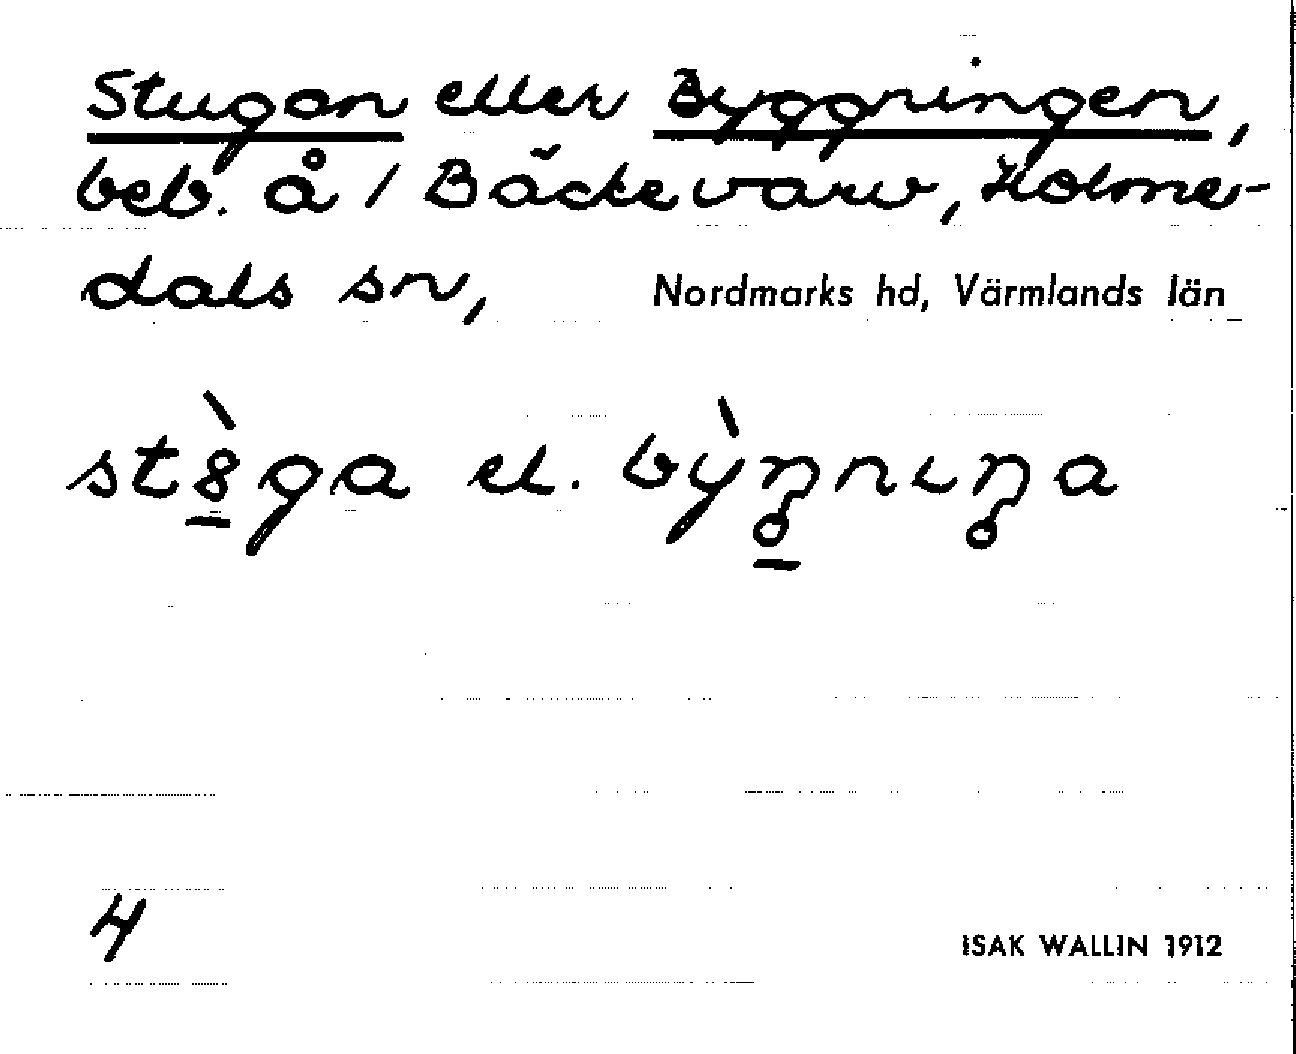 Stugan eller Byggningen,
beb. å 1 Bäckevarv, Holme-
dals sn, Nordmarks hd, Värmlands län
st8̀ga el. bỳŋnιŋa
4
ISAK WALLIN 1912